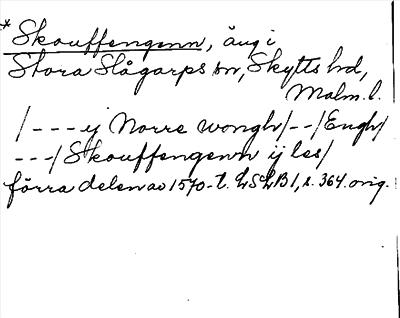 * Skouffengenn, äng i
Stora Slågarps sn, Skytts hd,
Malm. l.
/---ij Norre wongh/--/Engh/
---/Skouffengenn ij les/
förra delen av 1570-t. LSLB1, s. 364. orig.